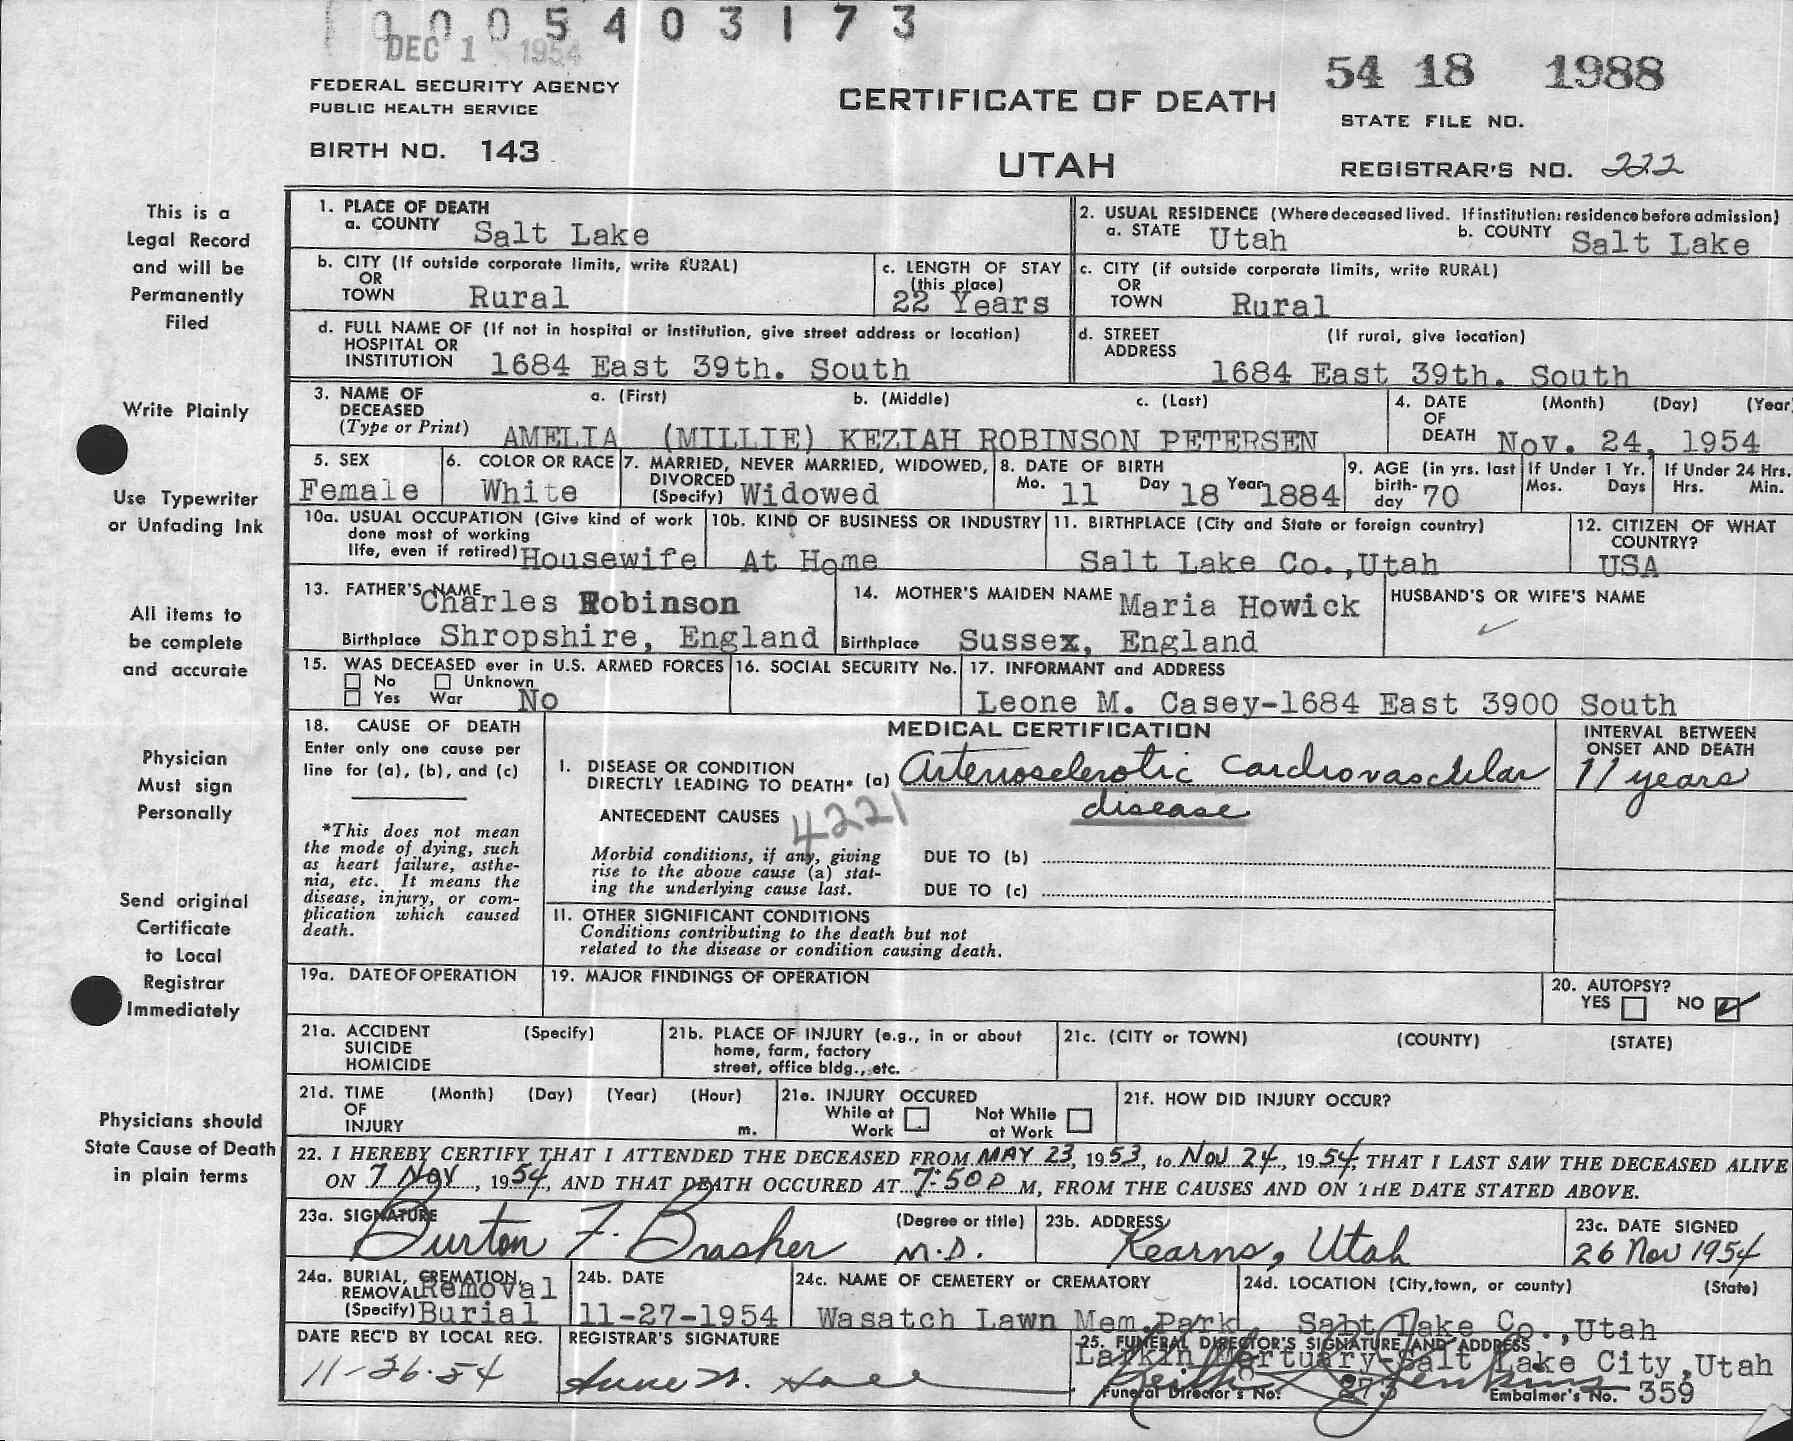 0 0 0 5 4 0 3 1 7 3
DEC 1 1954
54 18 1988
FEDERAL SECURITY AGENCY
PUBLIC HEALTH SERVICE
CERTIFICATE OF DEATH
STATE FILE NO.
BIRTH NO. 143
UTAH
REGISTRAR'S NO. 222
This is a
Legal Record
and will be
Permanently
Filed
Write Plainly
Use Typewriter
or Unfading Ink
All items to
be complete
and accurate
Physician
Must sign
Personally
Send original
Certificate
to Local
Registrar
Immediately
Physicians should
State Cause of Death
in plain terms
1. PLACE OF DEATH
a. COUNTY Salt Lake
2. USUAL RESIDENCE (Where deceased lived. If institution: residence before admission)
a. STATE Utah b. COUNTY Salt Lake
b. CITY (If outside corporate limits, write RURAL)
OR
TOWN Rural
c. LENGTH OF STAY
(this place)
22 Years
c. CITY (if outside corporate limits, write RURAL)
OR
TOWN Rural
d. FULL NAME OF (If not in hospital or institution, give street address or location)
HOSPITAL OR
INSTITUTION 1684 East 39th. South
d. STREET (If rural, give location)
ADDRESS
1684 East 39th. South
3. NAME OF a. (First) b. (Middle) c. (Last)
DECEASED
(Type or Print) AMELIA (MILLIE) KEZIAH ROBINSON PETERSEN
4. DATE (Month) (Day) (Year
OF
DEATH Nov. 24, 1954
5. SEX
Female
6. COLOR OR RACE
White
7. MARRIED, NEVER MARRIED, WIDOWED,
DIVORCED
(Specify) Widowed
8. DATE OF BIRTH
Mo. 11 Day 18 Year 1884
9. AGE (in yrs. last
birth-
day 70
If Under 1 Yr.
Mos. Days
If Under 24 Hrs.
Hrs. Min.
10a. USUAL OCCUPATION (Give kind of work
done most of working
life, even if retired) Housewife
10b. KIND OF BUSINESS OR INDUSTRY
At Home
11. BIRTHPLACE (City and State or foreign country)
Salt Lake Co.,Utah
12. CITIZEN OF WHAT
COUNTRY?
USA
13. FATHER'S NAME Charles Robinson
Birthplace Shropshire, England
14. MOTHER'S MAIDEN NAME Maria Howick
Birthplace Sussex, England
HUSBAND'S OR WIFE'S NAME
15. WAS DECEASED ever in U.S. ARMED FORCES
No Unknown
Yes War No
16. SOCIAL SECURITY No.
17. INFORMANT and ADDRESS
Leone M. Casey-1684 East 3900 South
18. CAUSE OF DEATH
Enter only one cause per
line for (a), (b), and (c)
*This does not mean
the mode of dying, such
as heart failure, asthe-
nia, etc. It means the
disease, injury, or com-
plication which caused
death.
MEDICAL CERTIFICATION
INTERVAL BETWEEN
ONSET AND DEATH
I. DISEASE OR CONDITION
DIRECTLY LEADING TO DEATH* (a) Arteriosclerotic Cardiovascular
disease
11 years
ANTECEDENT CAUSES
4221
Morbid conditions, if any, giving
rise to the above cause (a) stat-
ing the underlying cause last.
DUE TO (b)
DUE TO (c)
II. OTHER SIGNIFICANT CONDITIONS
Conditions contributing to the death but not
related to the disease or condition causing death.
19a. DATE OF OPERATION
19. MAJOR FINDINGS OF OPERATION
20. AUTOPSY?
YES NO
21a. ACCIDENT (Specify)
SUICIDE
HOMICIDE
21b. PLACE OF INJURY (e.g., in or about
home, farm, factory
street, office bldg., etc.
21c. (CITY or TOWN) (COUNTY) (STATE)
21d. TIME (Month) (Day) (Year) (Hour)
OF
INJURY m.
21e. INJURY OCCURED
While at Not While
Work at Work
21f. HOW DID INJURY OCCUR?
22. I HEREBY CERTIFY THAT I ATTENDED THE DECEASED FROM MAY 23, 1953, to Nov 24, 1954, THAT I LAST SAW THE DECEASED ALIVE
ON 7 Nov, 1954, AND THAT DEATH OCCURED AT 7:50P M, FROM THE CAUSES AND ON THE DATE STATED ABOVE.
23a. SIGNATURE (Degree or title)
Burton F. Brasher M.D.
23b. ADDRESS
Kearns, Utah
23c. DATE SIGNED
26 Nov 1954
24a. BURIAL, CREMATION,
REMOVAL Removal
(Specify) Burial
24b. DATE
11-27-1954
24c. NAME OF CEMETERY or CREMATORY
Wasatch Lawn Mem.Park
24d. LOCATION (City, town, or county) (State)
Salt Lake Co.,Utah
DATE REC'D BY LOCAL REG.
11-26-54
REGISTRAR'S SIGNATURE
25. FUNERAL DIRECTOR'S SIGNATURE AND ADDRESS
Larkin Mortuary-Salt Lake City,Utah
Keith Jenkins
Funeral Director's No. 273 Embalmer's No. 359